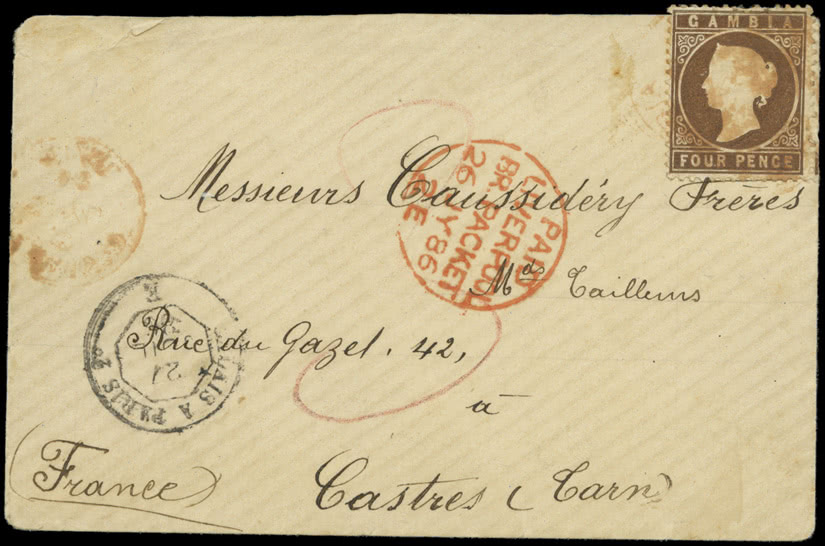 GAMBIA
FOUR PENCE
Messieurs Caussidéry Frères
Mds Tailleurs
Rue du Gazel. 42,
à
Castres (Tarn)
(France)
PAID
LIVERPOOL
BR. PACKET
26 JY 86
E
CALAIS A PARIS 2º